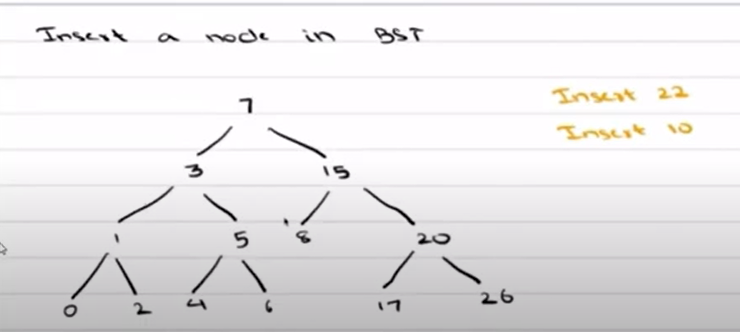 Insert a node in BST
Insert 22
Insert 10
7
3 15
1 5 8 20
0 2 4 6 17 26